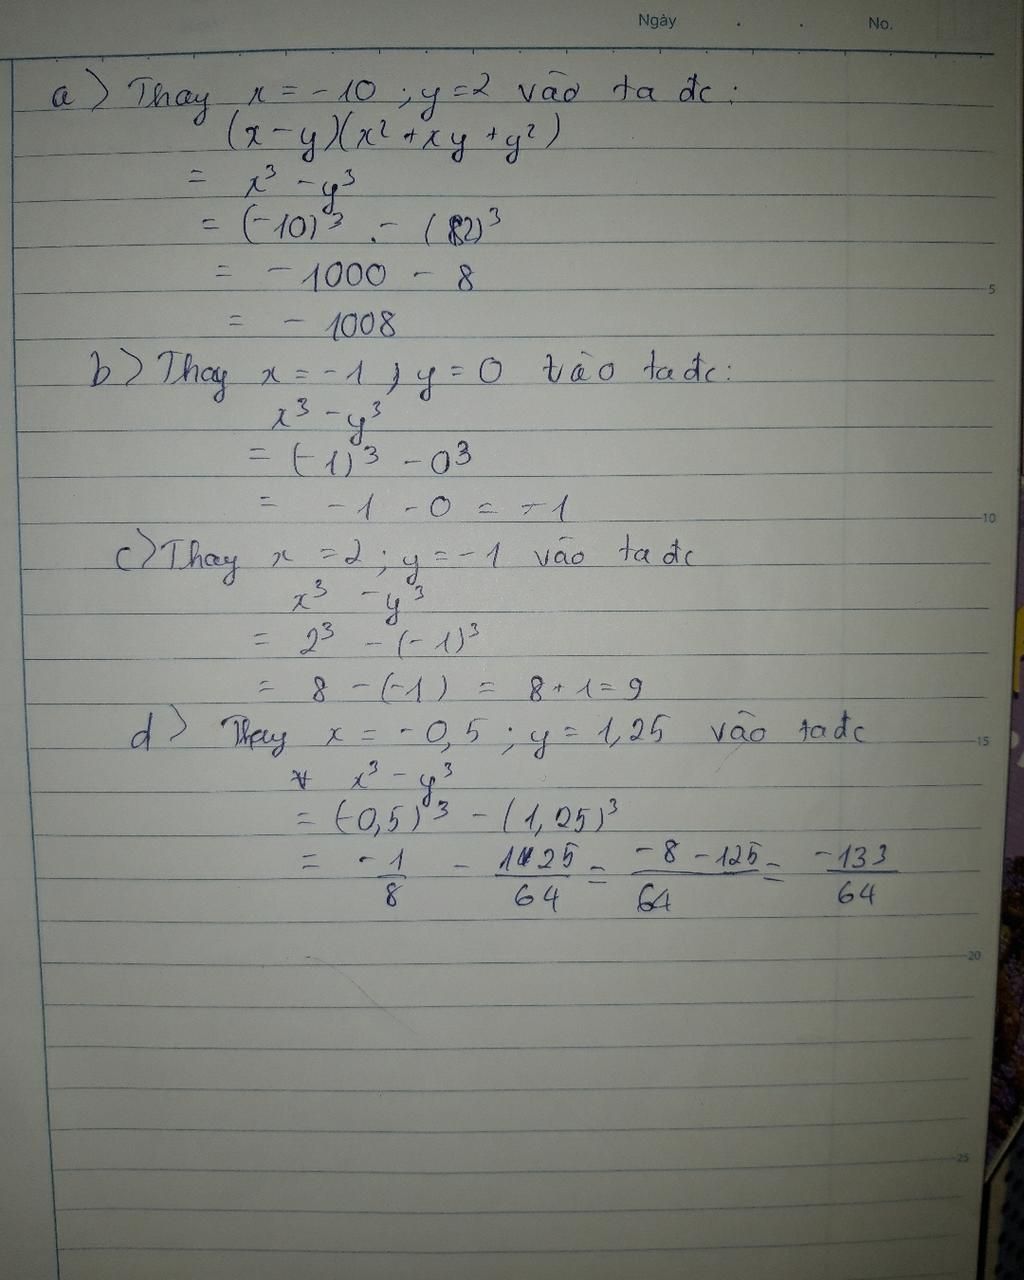 Ngày . . No.
a) Thay x = -10 ; y = 2 vào ta đc :
(x - y)(x² + xy + y²)
= x³ - y³
= (-10)³ - (2)³
= - 1000 - 8
= - 1008
5
b) Thay x = -1 ; y = 0 vào ta đc :
x³ - y³
= (-1)³ - 0³
= -1 - 0 = -1
10
c) Thay x = 2 ; y = -1 vào ta đc
x³ - y³
= 2³ - (-1)³
= 8 - (-1) = 8 + 1 = 9
d) Thay x = -0,5 ; y = 1,25 vào ta đc
15
x³ - y³
= (-0,5)³ - (1,25)³
= -1/8 - 125/64 = -8 - 125/64 = -133/64
20
25